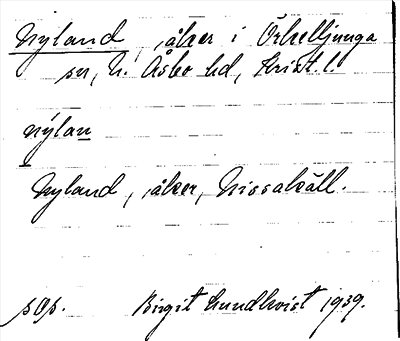 Nyland, åker i Örkelljunga
sn, N. Åsbo hd, Krist. l.
nýlan
Nyland, åker, Nissakäll.
sOp. Birgit Lundkvist 1939.